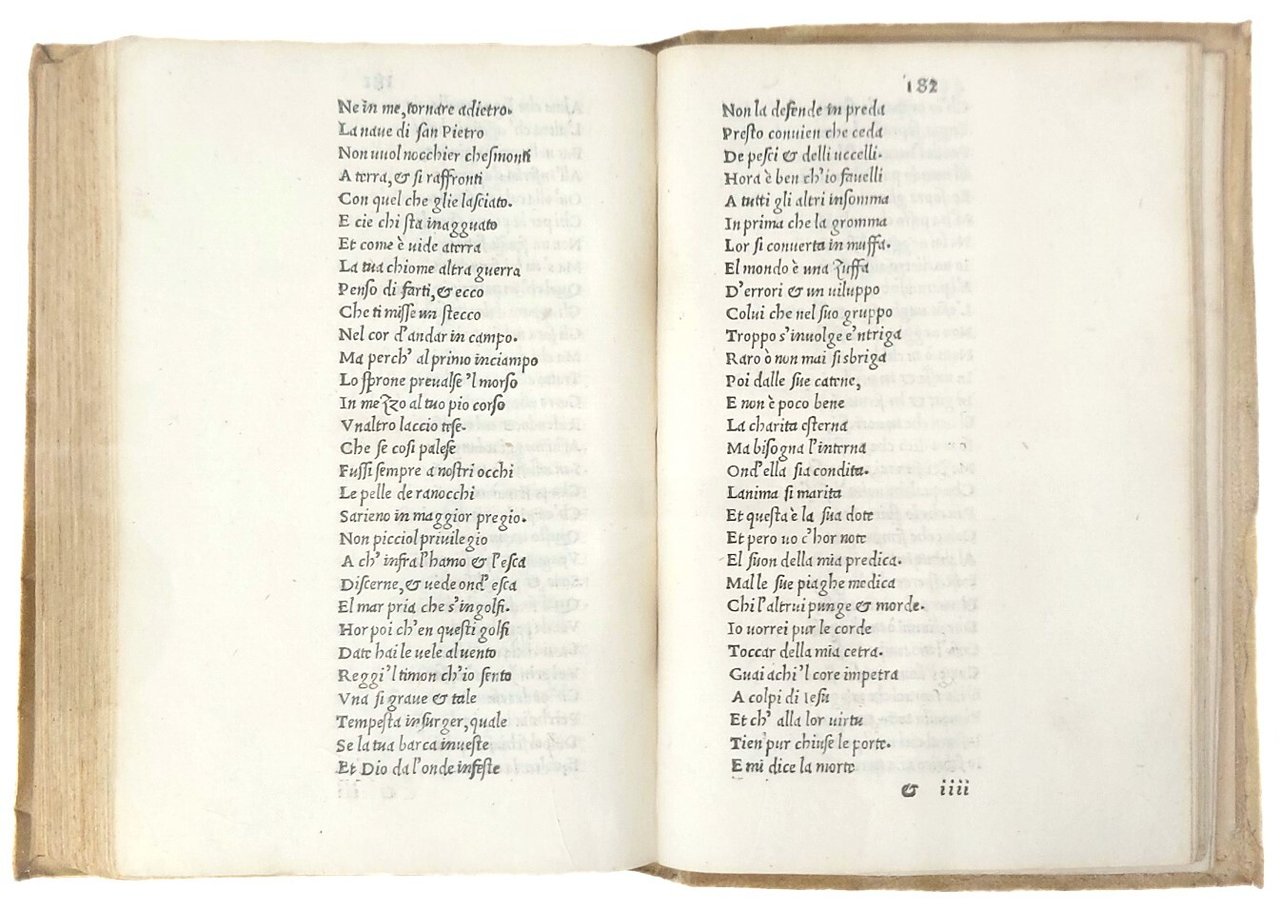 Ne in me, tornare adietro.
La naue di san Pietro
Non uuol nocchier chesmonti
A terra, & si raffronti
Con quel che glie lasciato.
E cie chi sta inagguato
Et come è uide aterra
La tua chiome altra guerra
Penso di farti, & ecco
Che ti misse un stecco
Nel cor d'andar in campo.
Ma perch' al primo inciampo
Lo sprone preualse 'l morso
In mezzo al tuo pio corso
Vnaltro laccio tese.
Che se cosi palese
Fussi sempre a nostri occhi
Le pelle de ranocchi
Sarieno in maggior pregio.
Non picciol priuilegio
A ch' infra l'hamo & l'esca
Discerne, & uede ond' esca
El mar pria che s'ingolfi.
Hor poi ch'en questi golfi
Date hai le uele al uento
Reggi 'l timon ch'io sento
Vna si graue & tale
Tempesta insurger, quale
Se la tua barca inueste
Et Dio da l'onde infeste
182
Non la defende in preda
Presto conuien che ceda
De pesci & delli uccelli.
Hora è ben ch'io fauelli
A tutti gli altri insomma
In prima che la gromma
Lor si conuerta in muffa.
El mondo è una zuffa
D'errori & un uiluppo
Colui che nel suo gruppo
Troppo s'inuolge e'ntriga
Raro ò non mai si sbriga
Poi dalle sue catene,
E non è poco bene
La charita esterna
Ma bisogna l'interna
Ond'ella sia condita.
Lanima si marita
Et questa è la sua dote
Et pero uo c'hor note
El suon della mia predica.
Mal le sue piaghe medica
Chi l'altrui punge & morde.
Io uorrei pur le corde
Toccar della mia cetra.
Guai achi 'l core impetra
A colpi di Iesu
Et ch' alla lor uirtu
Tien' pur chiuse le porte.
E mi dice la morte
& iiii